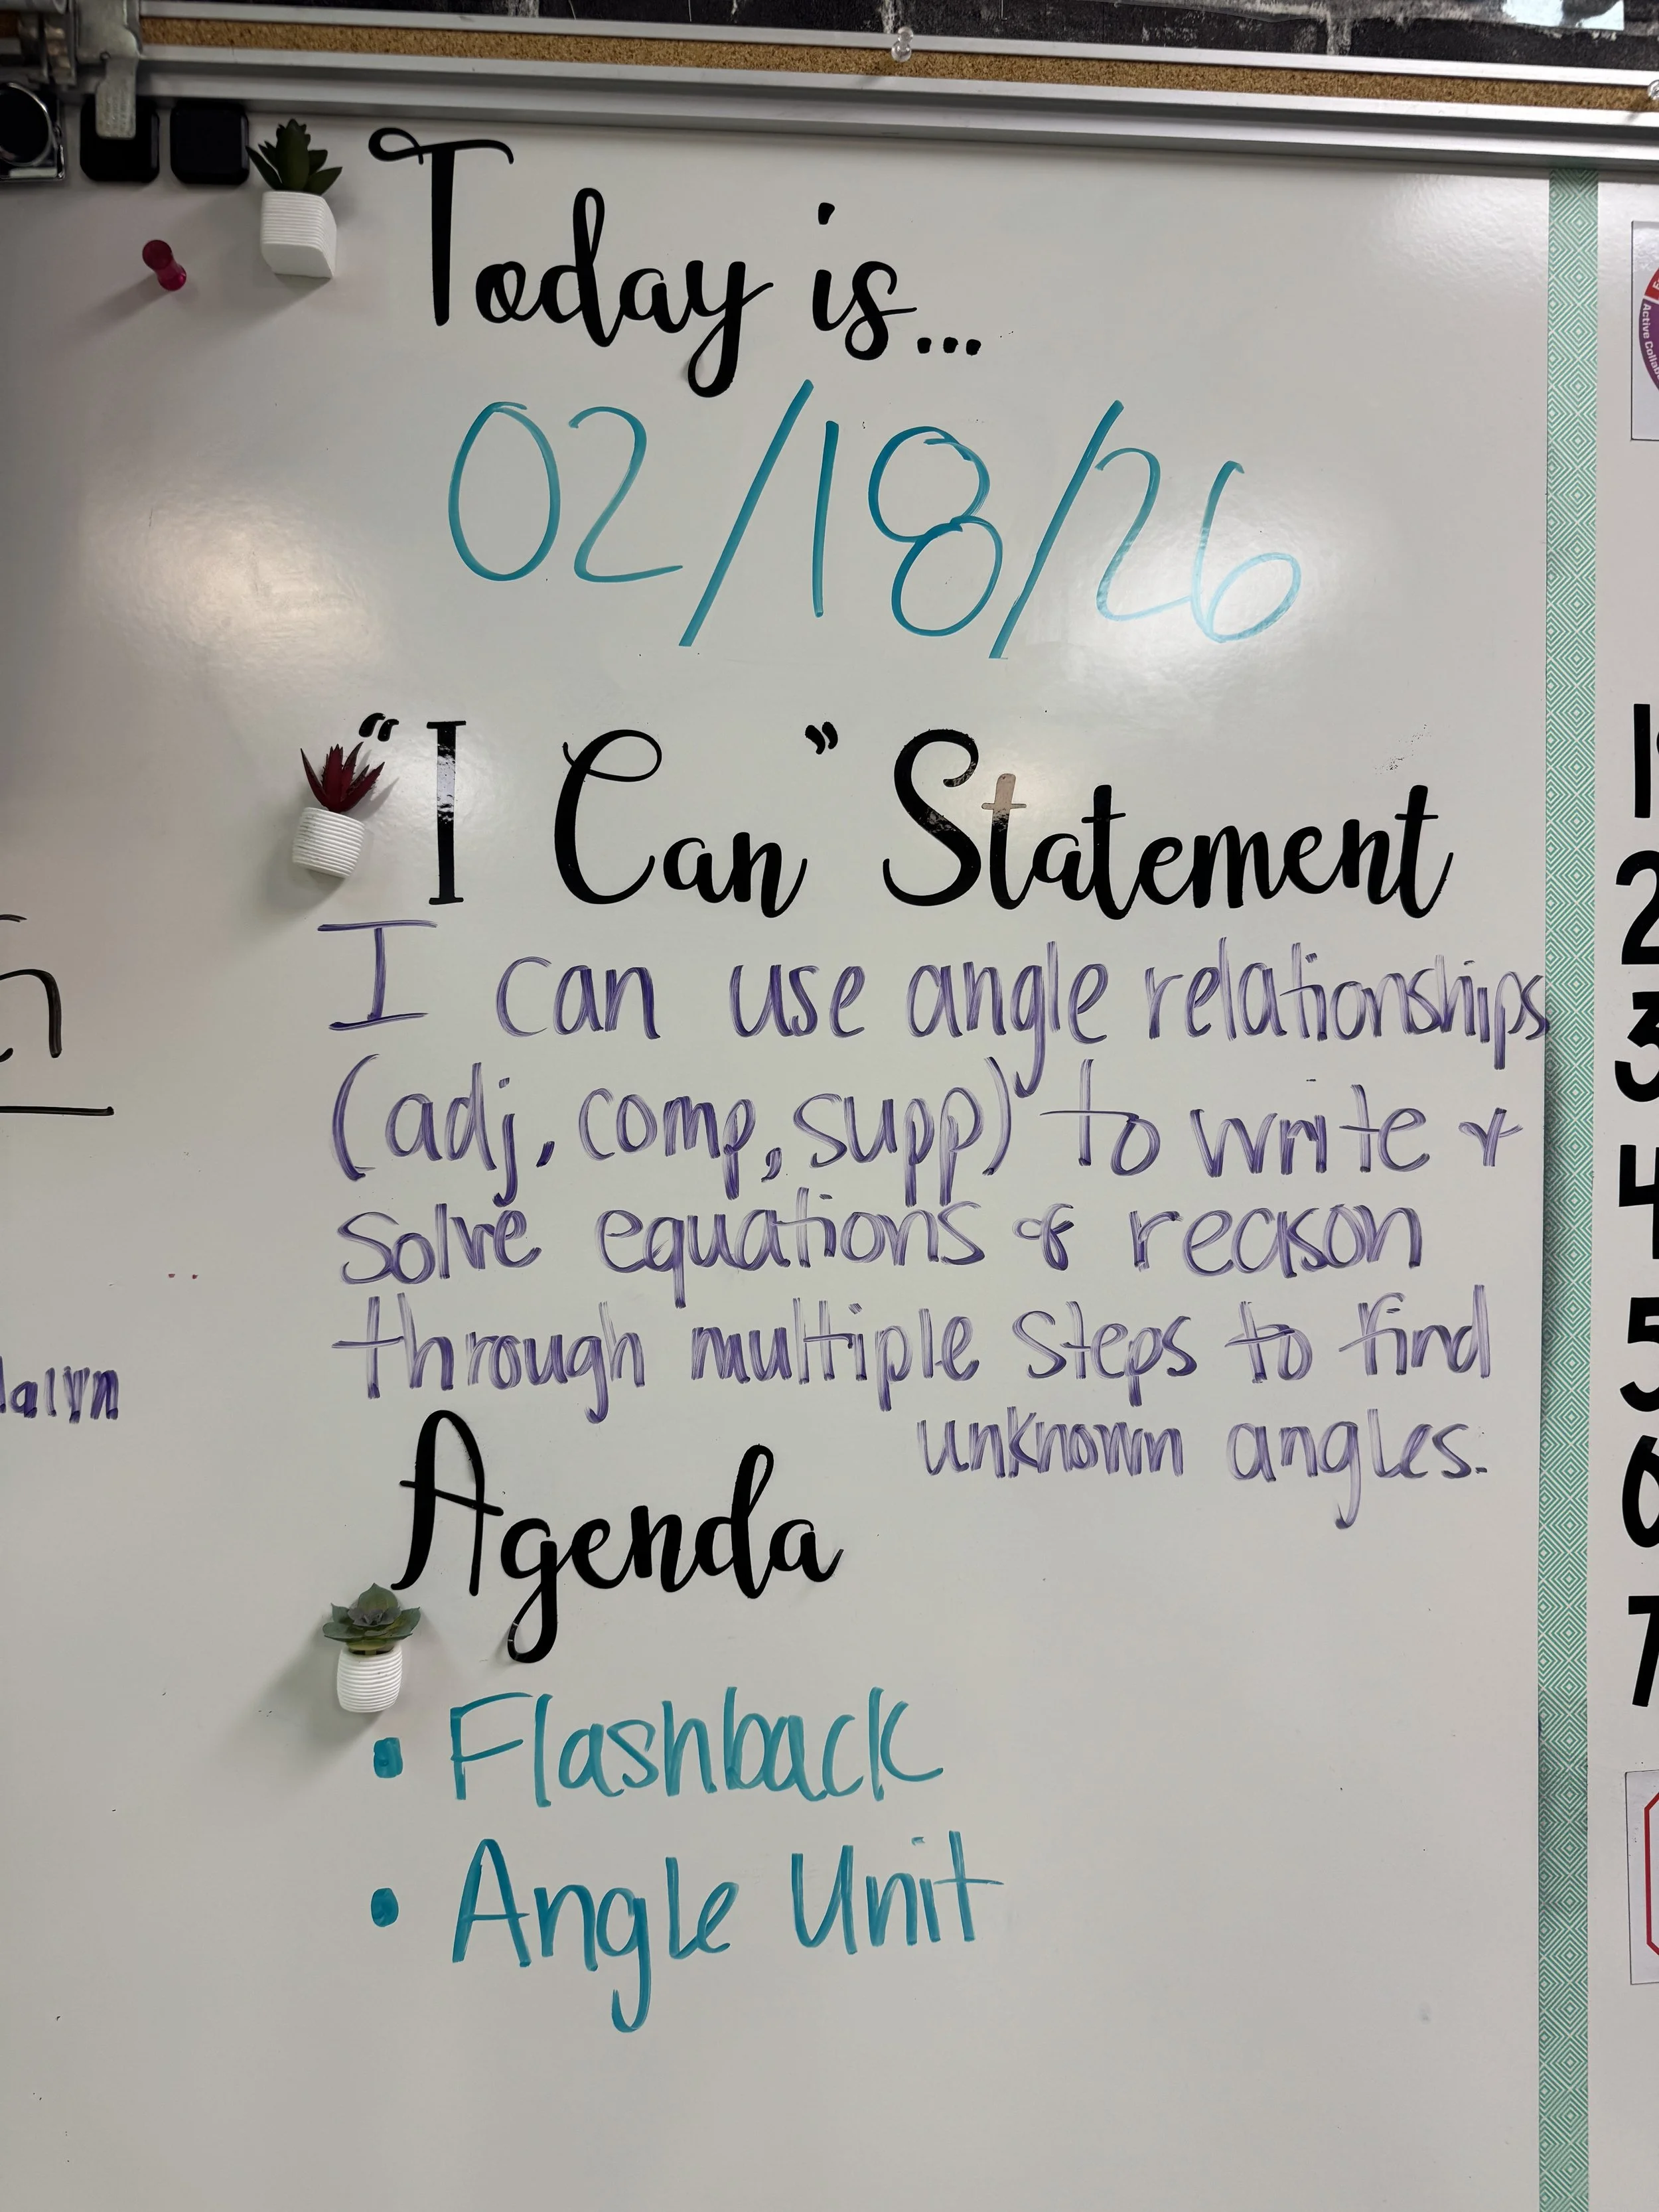 Today is...
02/18/26
"I Can" Statement
I can use angle relationships
(adj, comp, supp) to write &
solve equations & reason
through multiple steps to find
unknown angles.
Agenda
• Flashback
• Angle Unit
alyn
Active
2
3
4
5
6
7